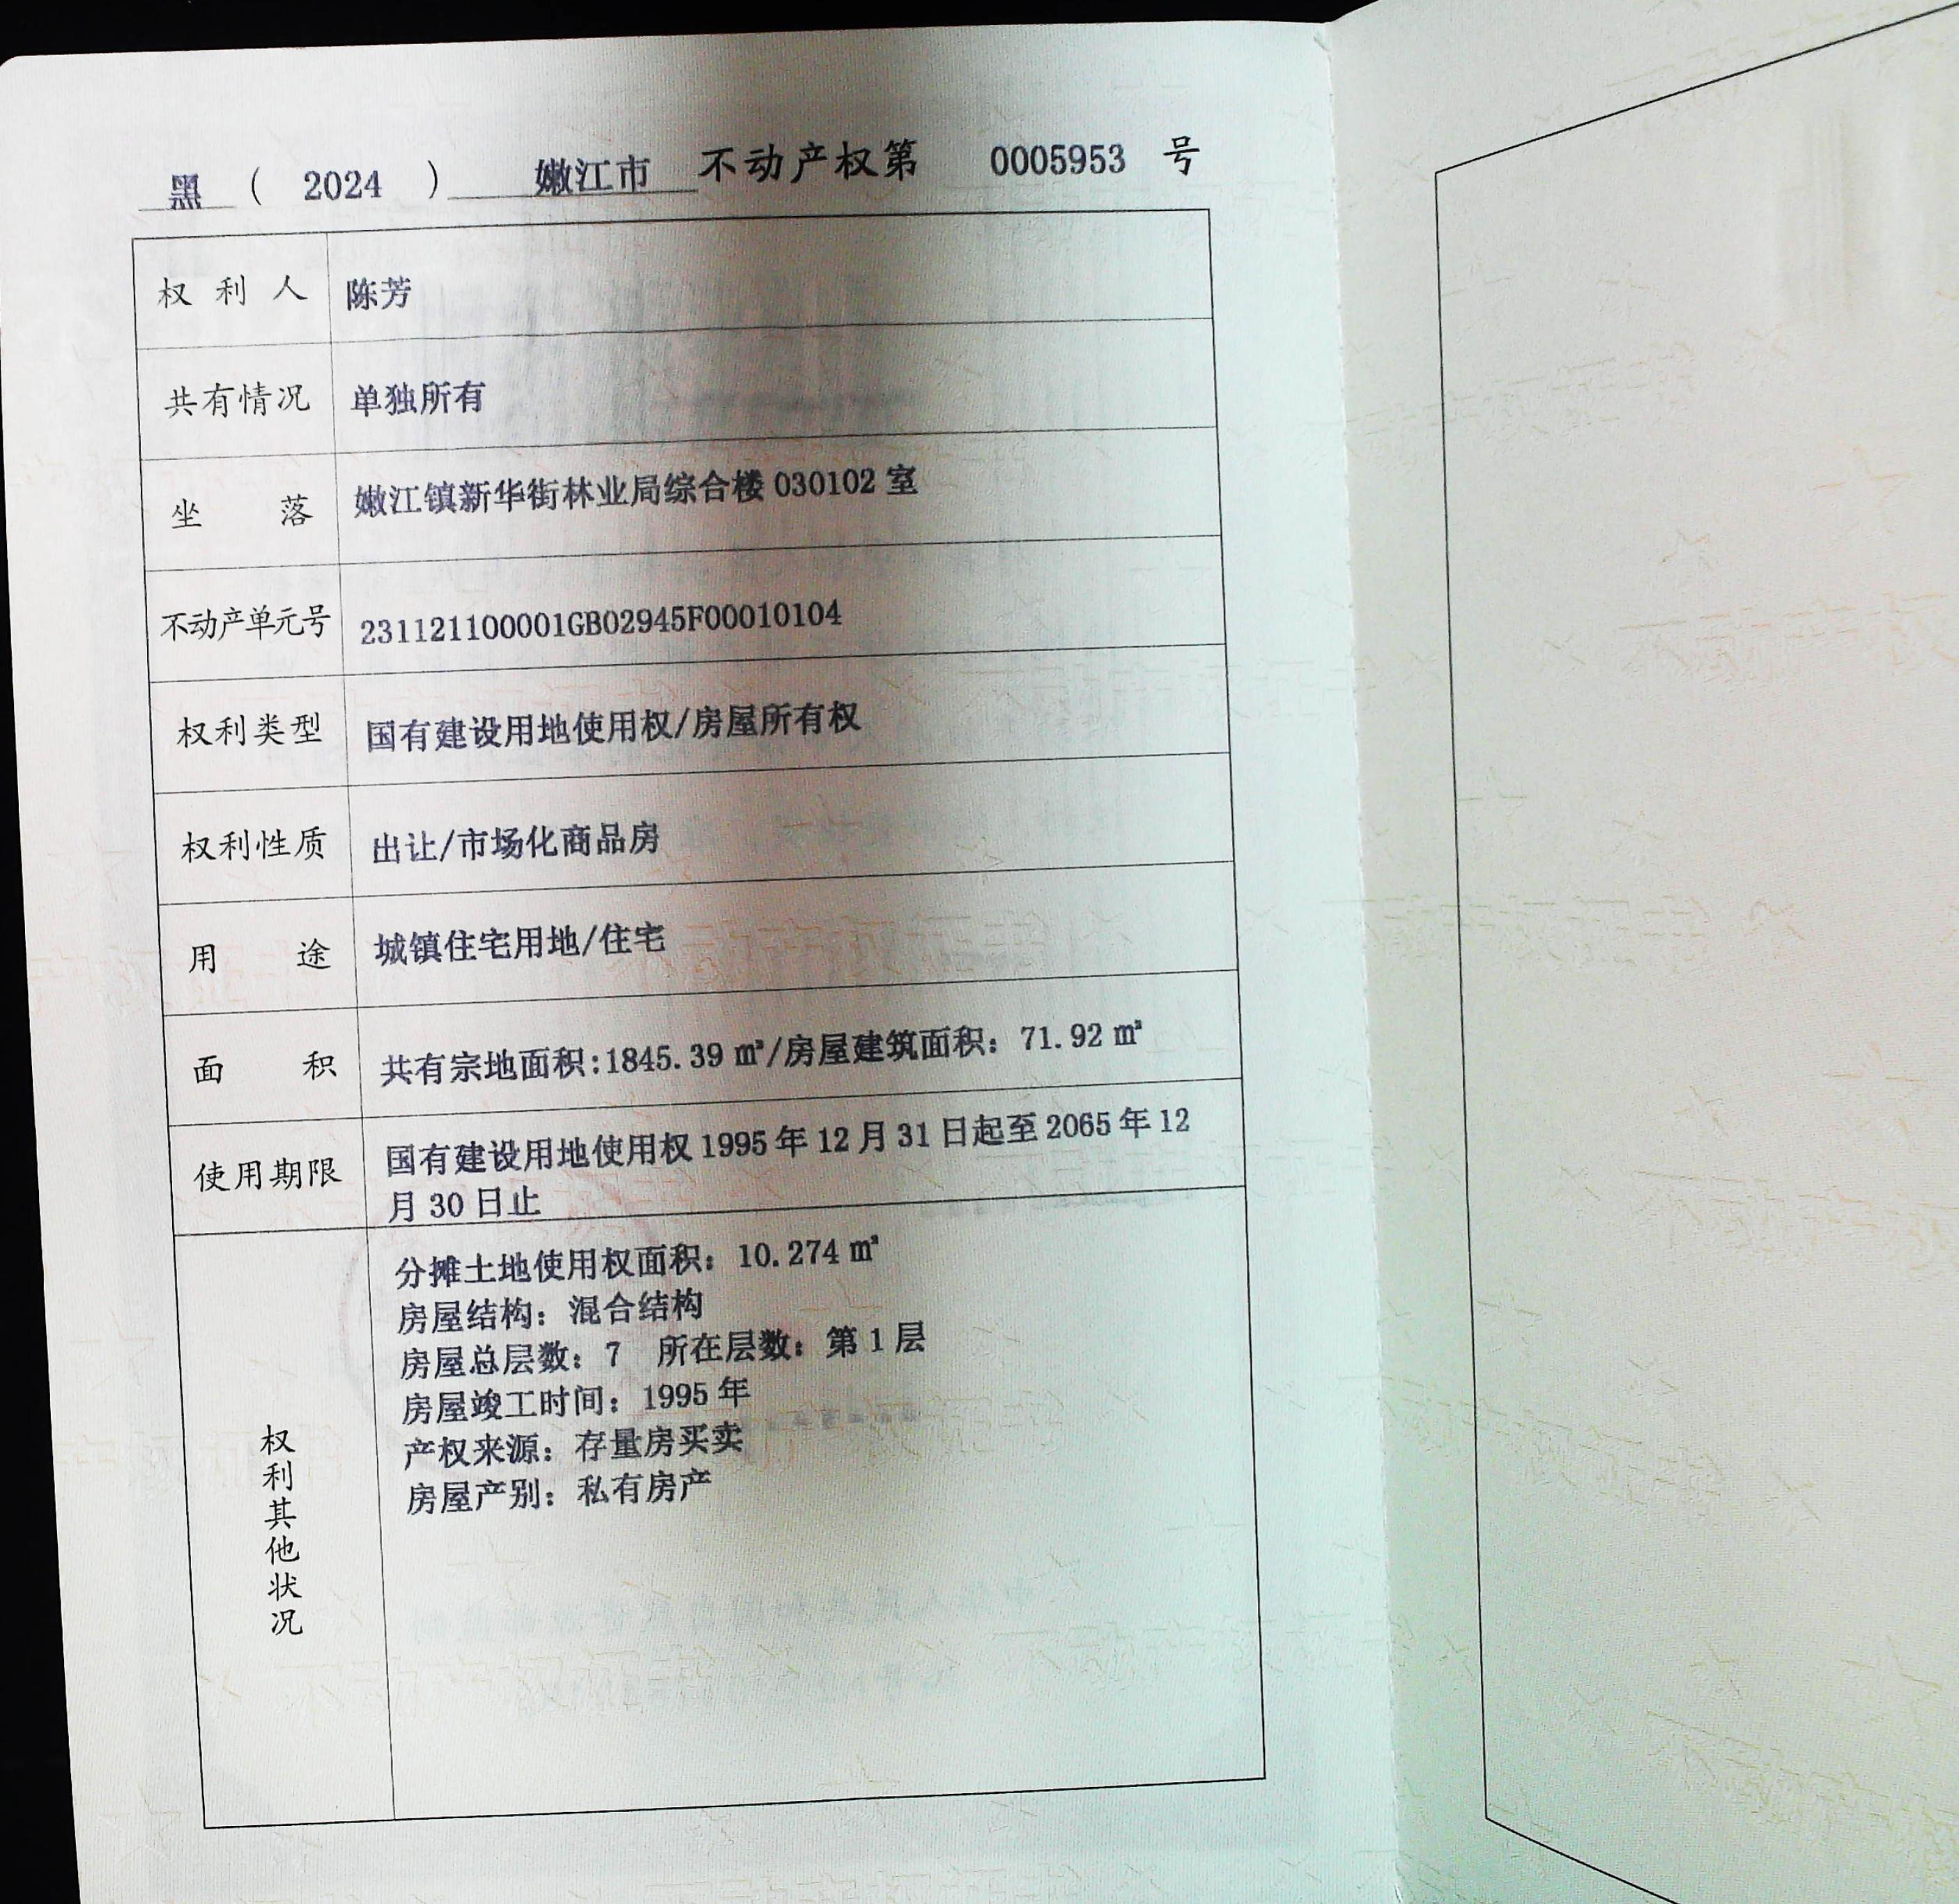 黑 ( 2024 ) 嫩江市 不动产权第 0005953 号
权利人 陈芳
共有情况 单独所有
坐落 嫩江镇新华街林业局综合楼 030102 室
不动产单元号 231121100001GB02945F00010104
权利类型 国有建设用地使用权/房屋所有权
权利性质 出让/市场化商品房
用途 城镇住宅用地/住宅
面积 共有宗地面积:1845.39 ㎡/房屋建筑面积：71.92 ㎡
使用期限 国有建设用地使用权 1995 年 12 月 31 日起至 2065 年 12
月 30 日止
权利其他状况
分摊土地使用权面积：10.274 ㎡
房屋结构：混合结构
房屋总层数：7 所在层数：第 1 层
房屋竣工时间：1995 年
产权来源：存量房买卖
房屋产别：私有房产